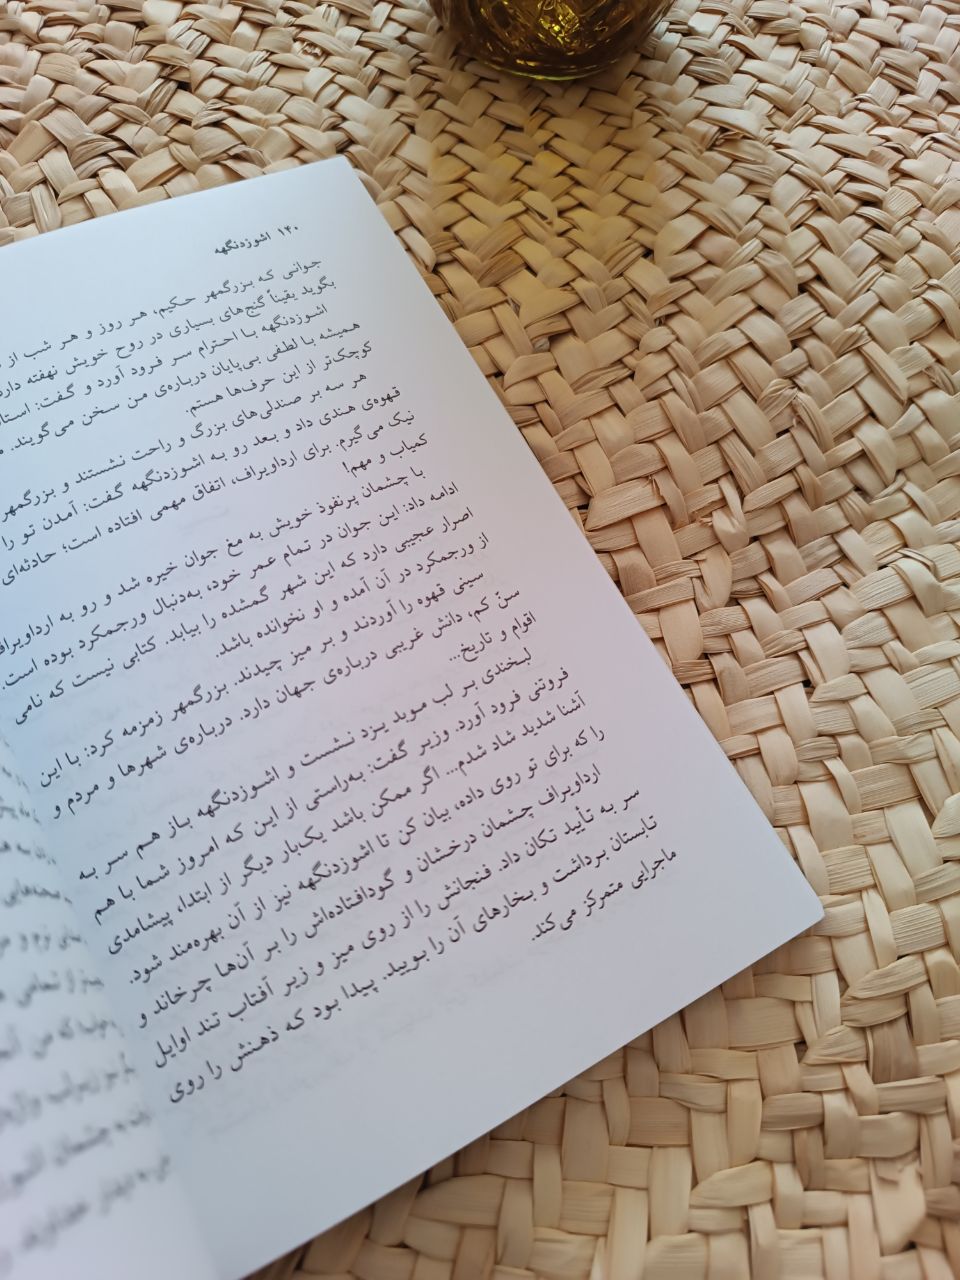 ۱۴۰ اشوزدنگهه
جوانی که بزرگمهر حکیم، هر روز و هر شب از
بگوید یقیناً گنج‌های بسیاری در روح خویش نهفته دارد
اشوزدنگهه با احترام سر فرود آورد و گفت: استاد
همیشه با لطفی بی‌پایان درباره‌ی من سخن می‌گویند.
کوچک‌تر از این حرف‌ها هستم.
هر سه بر صندلی‌های بزرگ و راحت نشستند و بزرگمهر
قهوه‌ی هندی داد و بعد رو به اشوزدنگهه گفت: آمدن تو را
نیک می‌گیرم. برای ارداویراف، اتفاق مهمی افتاده است؛ حادثه‌ای
کمیاب و مهم!
با چشمان پرنفوذ خویش به مغ جوان خیره شد و رو به ارداویراف
ادامه داد: این جوان در تمام عمر خود، به‌دنبال ورجمکرد بوده است.
اصرار عجیبی دارد که این شهر گمشده را بیابد. کتابی نیست که نامی
از ورجمکرد در آن آمده و او نخوانده باشد.
سینی قهوه را آوردند و بر میز چیدند. بزرگمهر زمزمه کرد: با این
سنّ کم، دانش غریبی درباره‌ی جهان دارد. درباره‌ی شهرها و مردم و
اقوام و تاریخ...
لبخندی بر لب موبد یزد نشست و اشوزدنگهه باز هم سر به
فروتنی فرود آورد. وزیر گفت: به‌راستی از این که امروز شما با هم
آشنا شدید شاد شدم... اگر ممکن باشد یک‌بار دیگر از ابتدا، پیشامدی
را که برای تو روی داده، بیان کن تا اشوزدنگهه نیز از آن بهره‌مند شود.
ارداویراف چشمان درخشان و گودافتاده‌اش را بر آن‌ها چرخاند و
سر به تأیید تکان داد. فنجانش را از روی میز و زیر آفتاب تند اوایل
تابستان برداشت و بخارهای آن را بویید. پیدا بود که ذهنش را روی
ماجرایی متمرکز می‌کند.